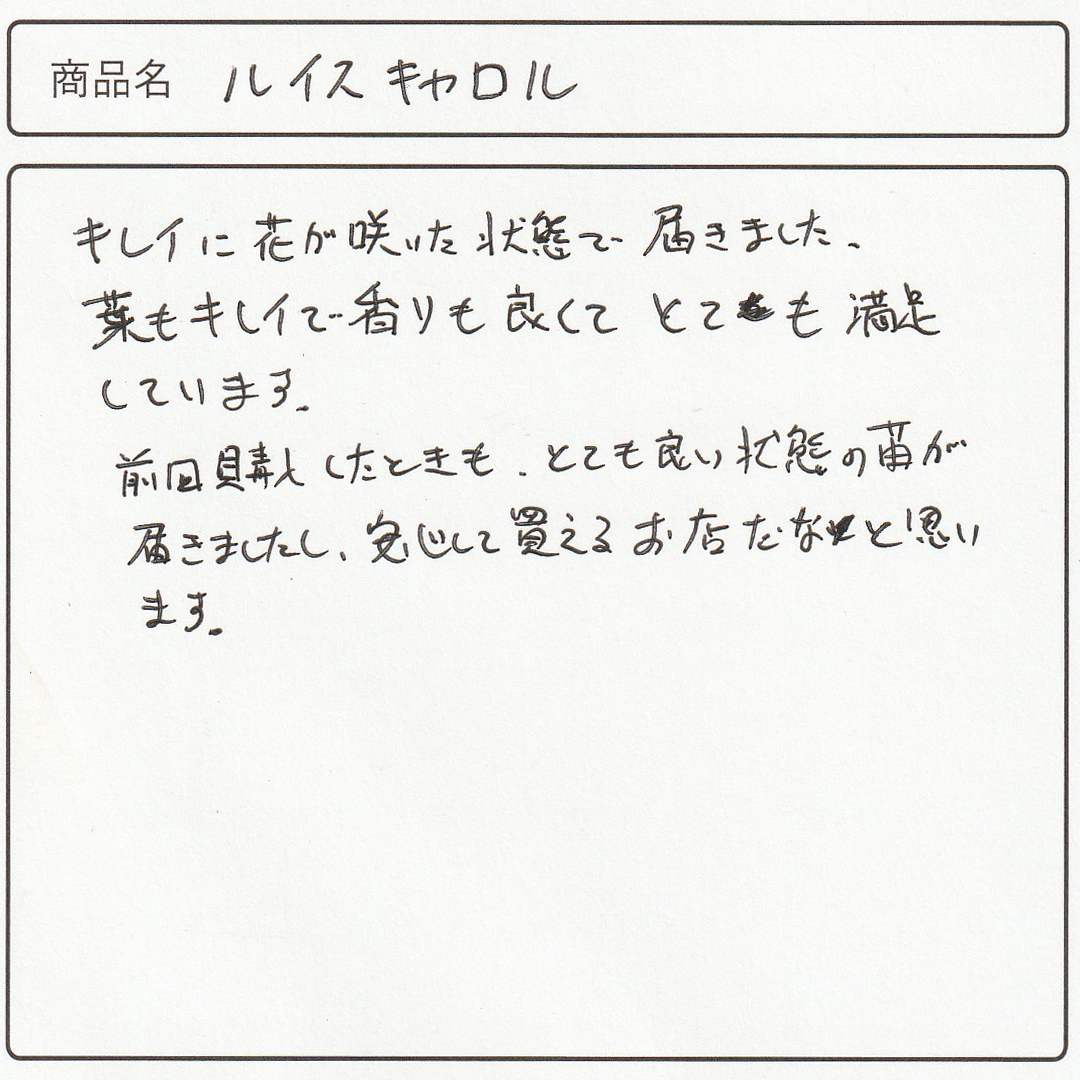 商品名 ルイスキャロル
キレイに花が咲いた状態で届きました、
葉もキレイで香りも良くてとても満足
しています.
前回購入したときも、とても良い状態の苗が
届きましたし、安心して買えるお店だなと思い
ます.